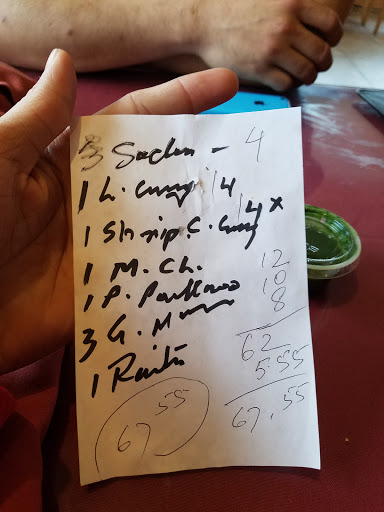 3 Soda - 4
1 L. Curry 14
1 Shrimp C. Curry 14 x
1 M. Ch. 12
1 P. 10
3 G. 8
1 Raita
62
5.55
67.55
67 55